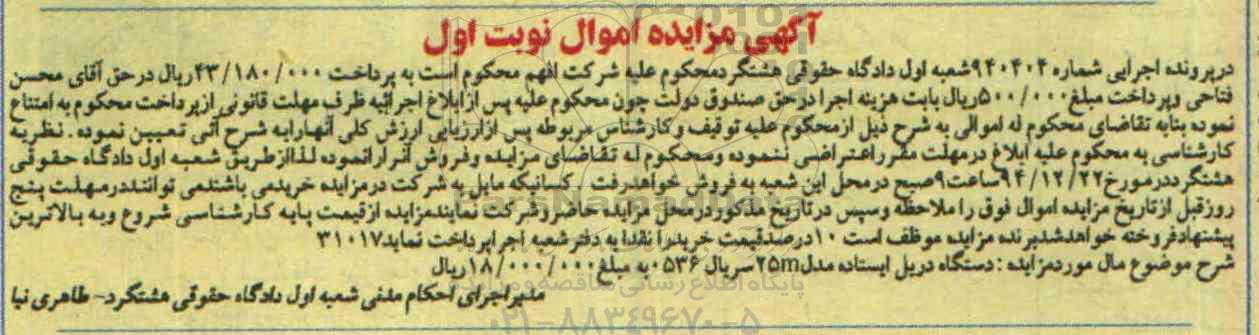 آگهی مزایده اموال نوبت اول
درپرونده اجرایی شماره ۹۴۰۴۰۴شعبه اول دادگاه حقوقی هشتگردمحکوم علیه شرکت افهم محکوم است به پرداخت ۴۳/۱۸۰/۰۰۰ریال درحق آقای محسن
فتاحی وپرداخت مبلغ۵۰۰/۰۰۰ریال بابت هزینه اجرا درحق صندوق دولت چون محکوم علیه پس ازابلاغ اجرائیه ظرف مهلت قانونی ازپرداخت محکوم به امتناع
نموده بنابه تقاضای محکوم له اموالی به شرح ذیل ازمحکوم علیه توقیف وکارشناس مربوطه پس ازارزیابی ارزش کلی آنهارابه شرح آتی تعیین نموده . نظریه
کارشناسی به محکوم علیه ابلاغ درمهلت مقرراعتراضی ننموده ومحکوم له تقاضای مزایده وفروش آنراراننموده لذاازطریق شعبه اول دادگاه حقوقی
هشتگرددرمورخ۹۴/۱۲/۲۲ساعت۹صبح درمحل این شعبه به فروش خواهدرفت . کسانیکه مایل به شرکت درمزایده خریدمی باشندمی تواننددرمهلت پنج
روزقبل ازتاریخ مزایده اموال فوق را ملاحظه وسپس درتاریخ مذکوردرمحل مزایده حاضروشرکت نمایندمزایده ازقیمت پایه کارشناسی شروع وبه بالاترین
پیشنهادفروخته خواهدشدبرنده مزایده موظف است ۱۰درصدقیمت خریدرا نقدابه دفترشعبه اجراپرداخت نماید۳۱۰۱۷
شرح موضوع مال موردمزایده : دستگاه دریل ایستاده مدل۲۵mسریال ۰۵۳۶به مبلغ۱۸/۰۰۰/۰۰۰ریال
مدیراجرای احکام مدنی شعبه اول دادگاه حقوقی هشتگرد- طاهری نیا
پایگاه اطلاع رسانی مناقصه و مزایده
ParsNamadData
۰۲۱-۸۸۳۴۹۶۷۰-۵